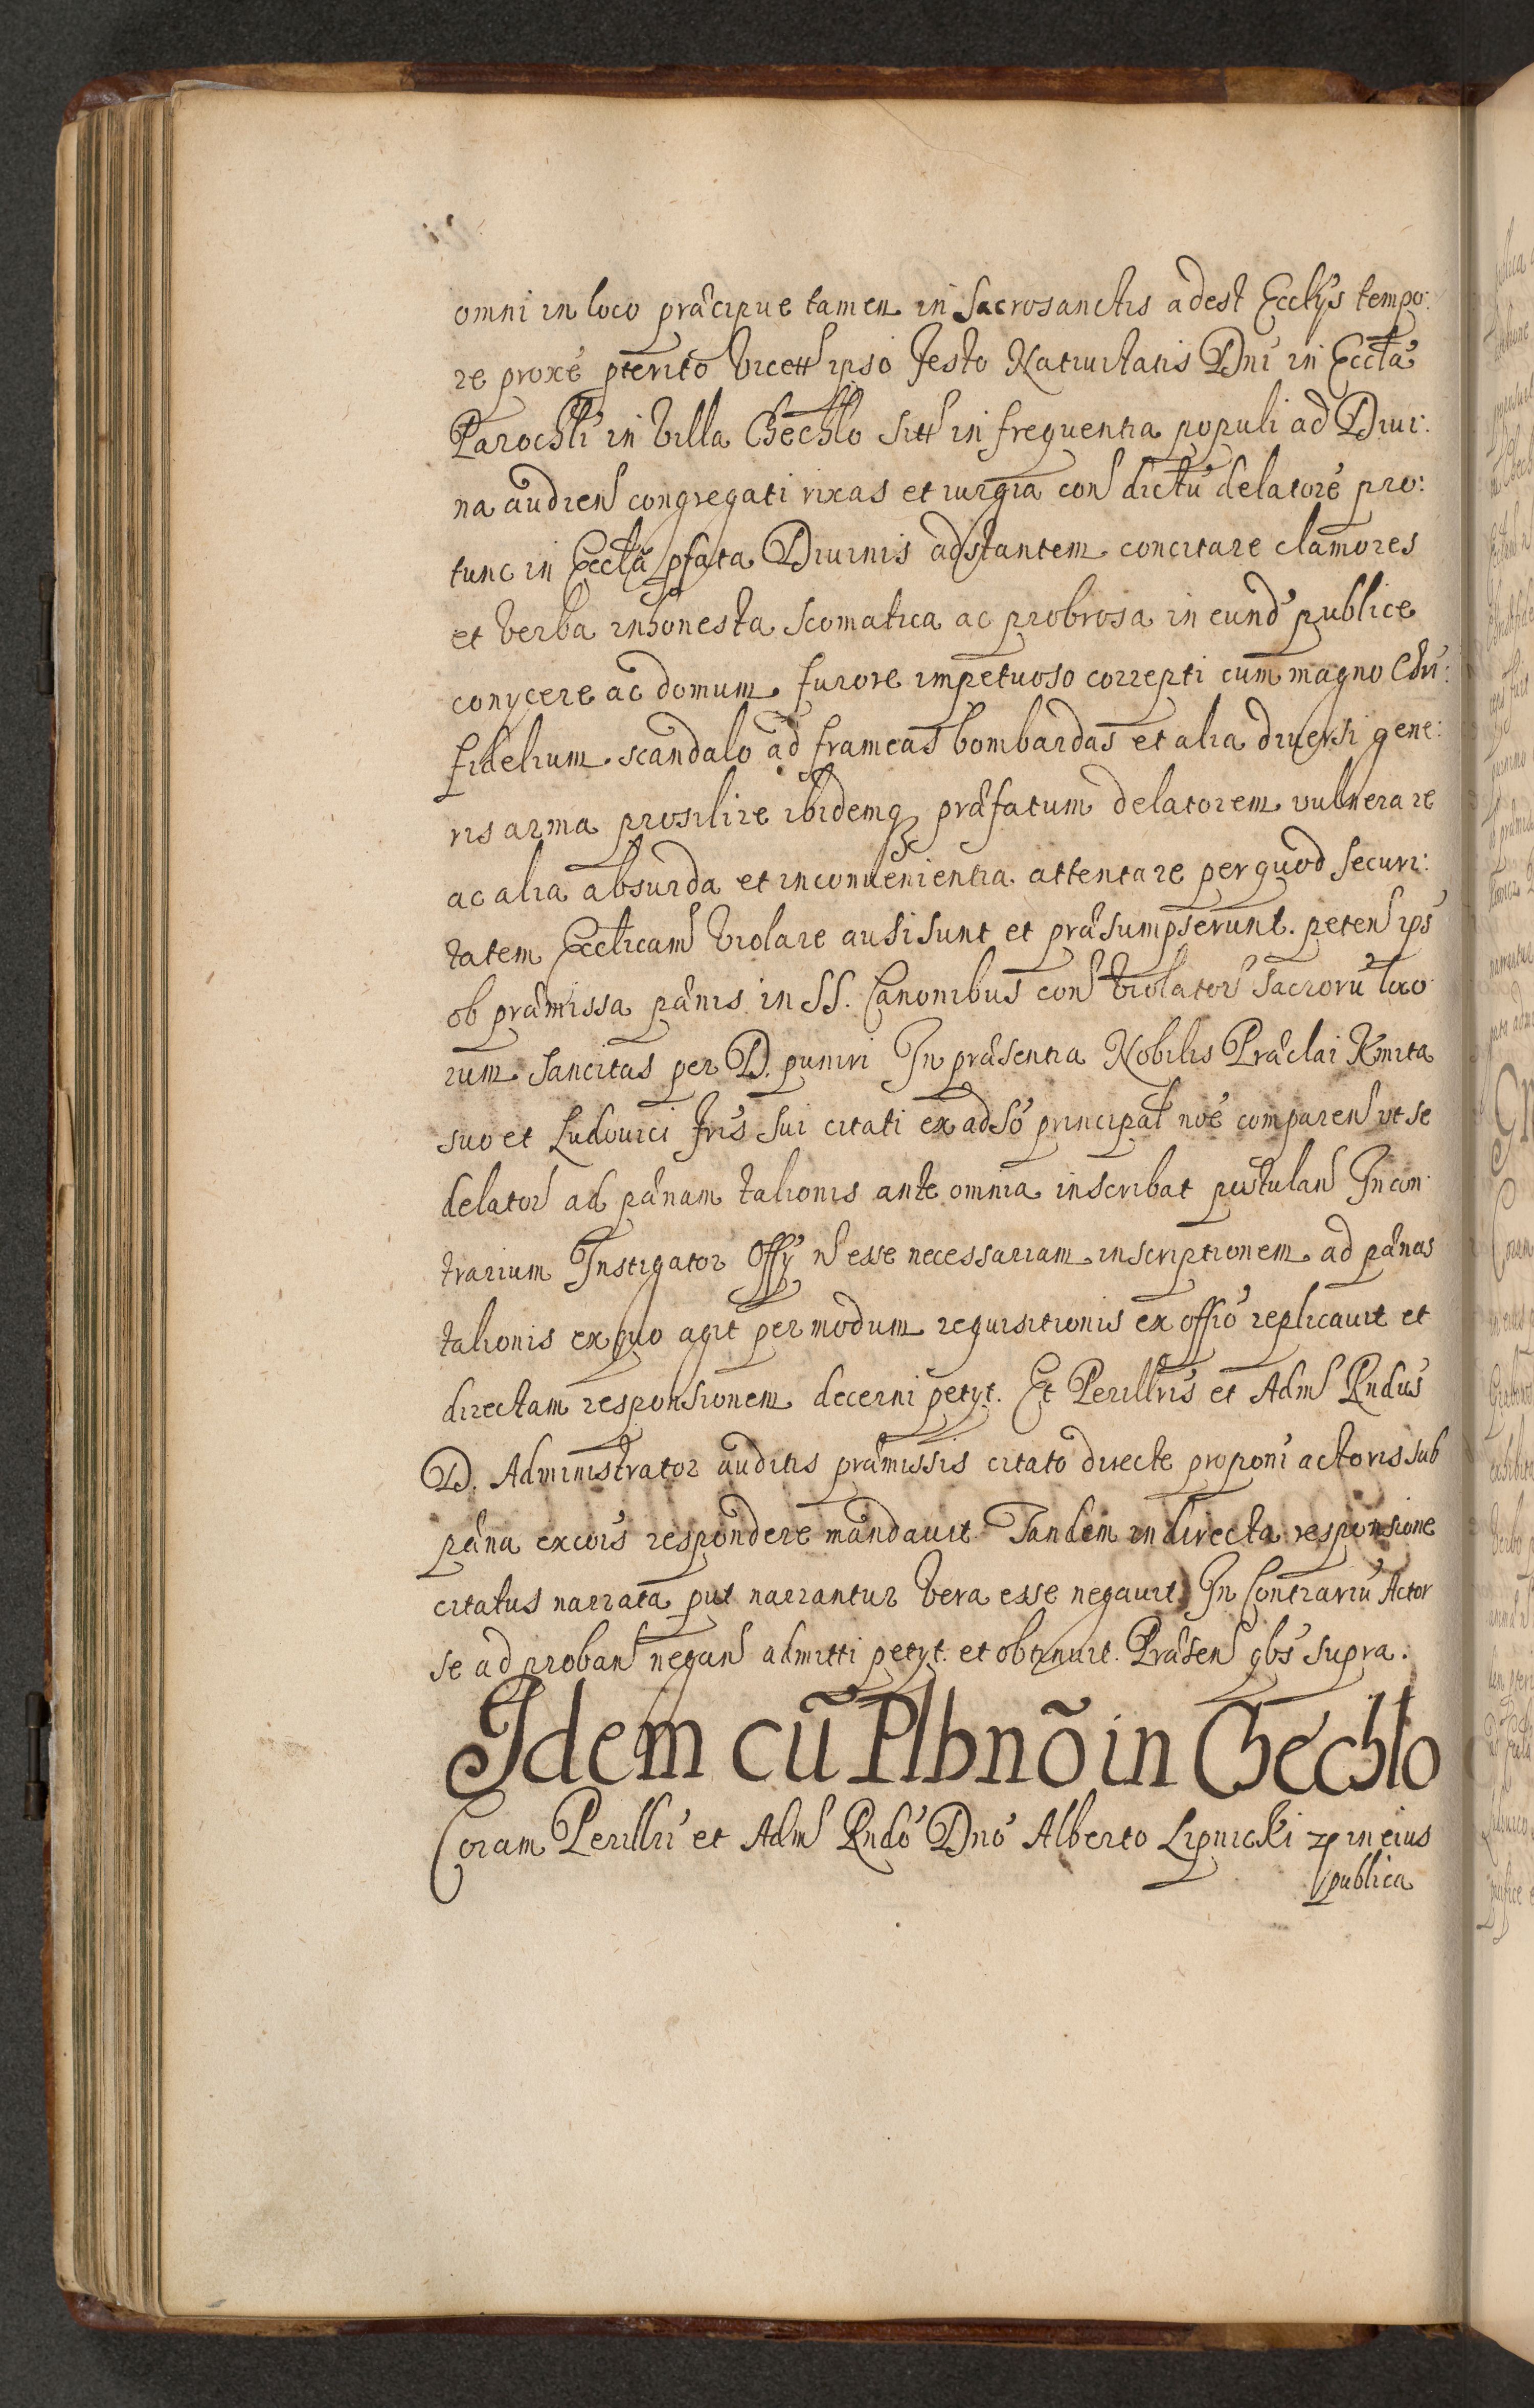 omni in loco præcipue tamen in Sacrosanctis adest Eccliÿs tempo:
re proxe pterito vicett ipso Festo Natiuitatis Dni in Eccla
Parochli in Villa Chechlo sitt in frequentia populi ad Diui:
na audien congregati rixas et iurgia con dictu delatore pro:
tunc in Eccla pfata Diuinis adstantem concitare clamores
et verba inhonesta scomatica ac probrosa in eund publice
conÿcere ac domum furore impetuoso correpti cum magno Chri:
fidelium scandalo ad frameas bombardas et alia diuersi gene:
ris arma prosilire ibidemq præfatum delatorem vulnerare
ac alia absurda et inconuenientia attentare per quod securi:
tatem Ecclicam violare ausi sunt et præsumpserunt. peten ips
ob præmissa pænis in SS. Canonibus con violator Sacroru loco
rum sancitas per D. puniri In præsentia Nobilis Præclai Kmita
suo et Ludouici Fris sui citati ex adso principal noe comparen vt se
delator ad pænam talionis ante omnia inscribat postulan In con:
trarium Instigator Offÿ n esse necessariam inscriptionem ad pænas
talionis ex quo agit per modum requisitionis ex offio replicauit et
directam responsionem decerni petÿt. Et Perillris et Adm Rndus
D. Administrator auditis præmissis citato directe proponi actoris sub
pæna excois respondere mandauit Tandem in directa responsione
citatus narrata put narrantur vera esse negauit. In Contrariu Actor
se ad proban negan admitti petÿt. et obtinuit. Præsen qbs supra.
Idem cũ Plbnõ in Chechlo
Coram Perillri et Adm Rndo Dno Alberto Lipnicki zp in eius
publica